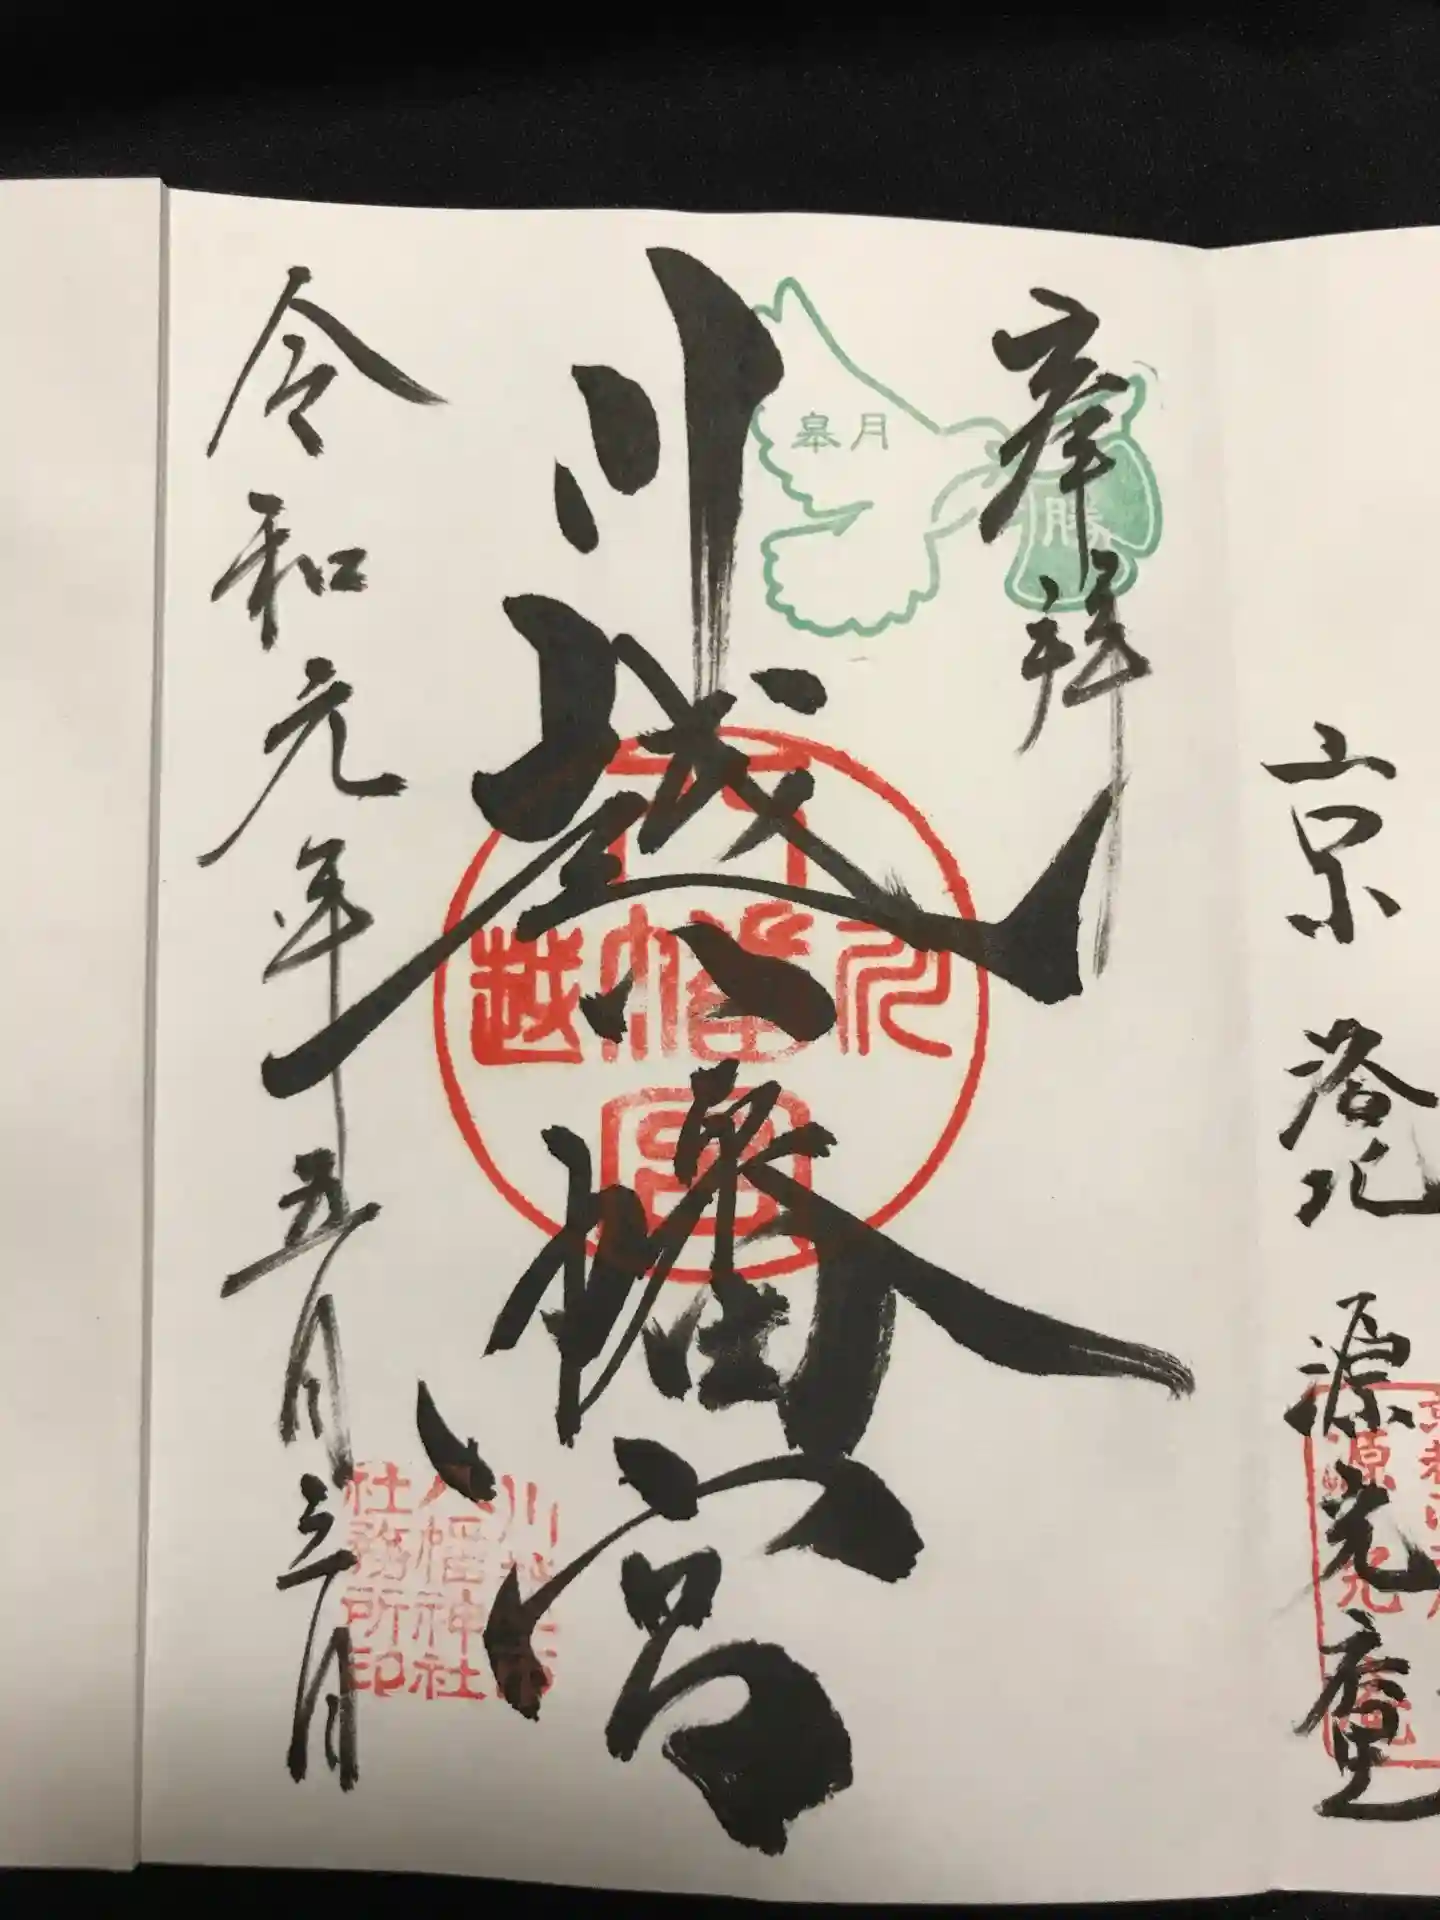 京
洛北
源光庵
奉拝
皐月
勝
川越八幡宮
川越
八幡
宮
川越市
八幡神社
社務所印
令和元年五月三日